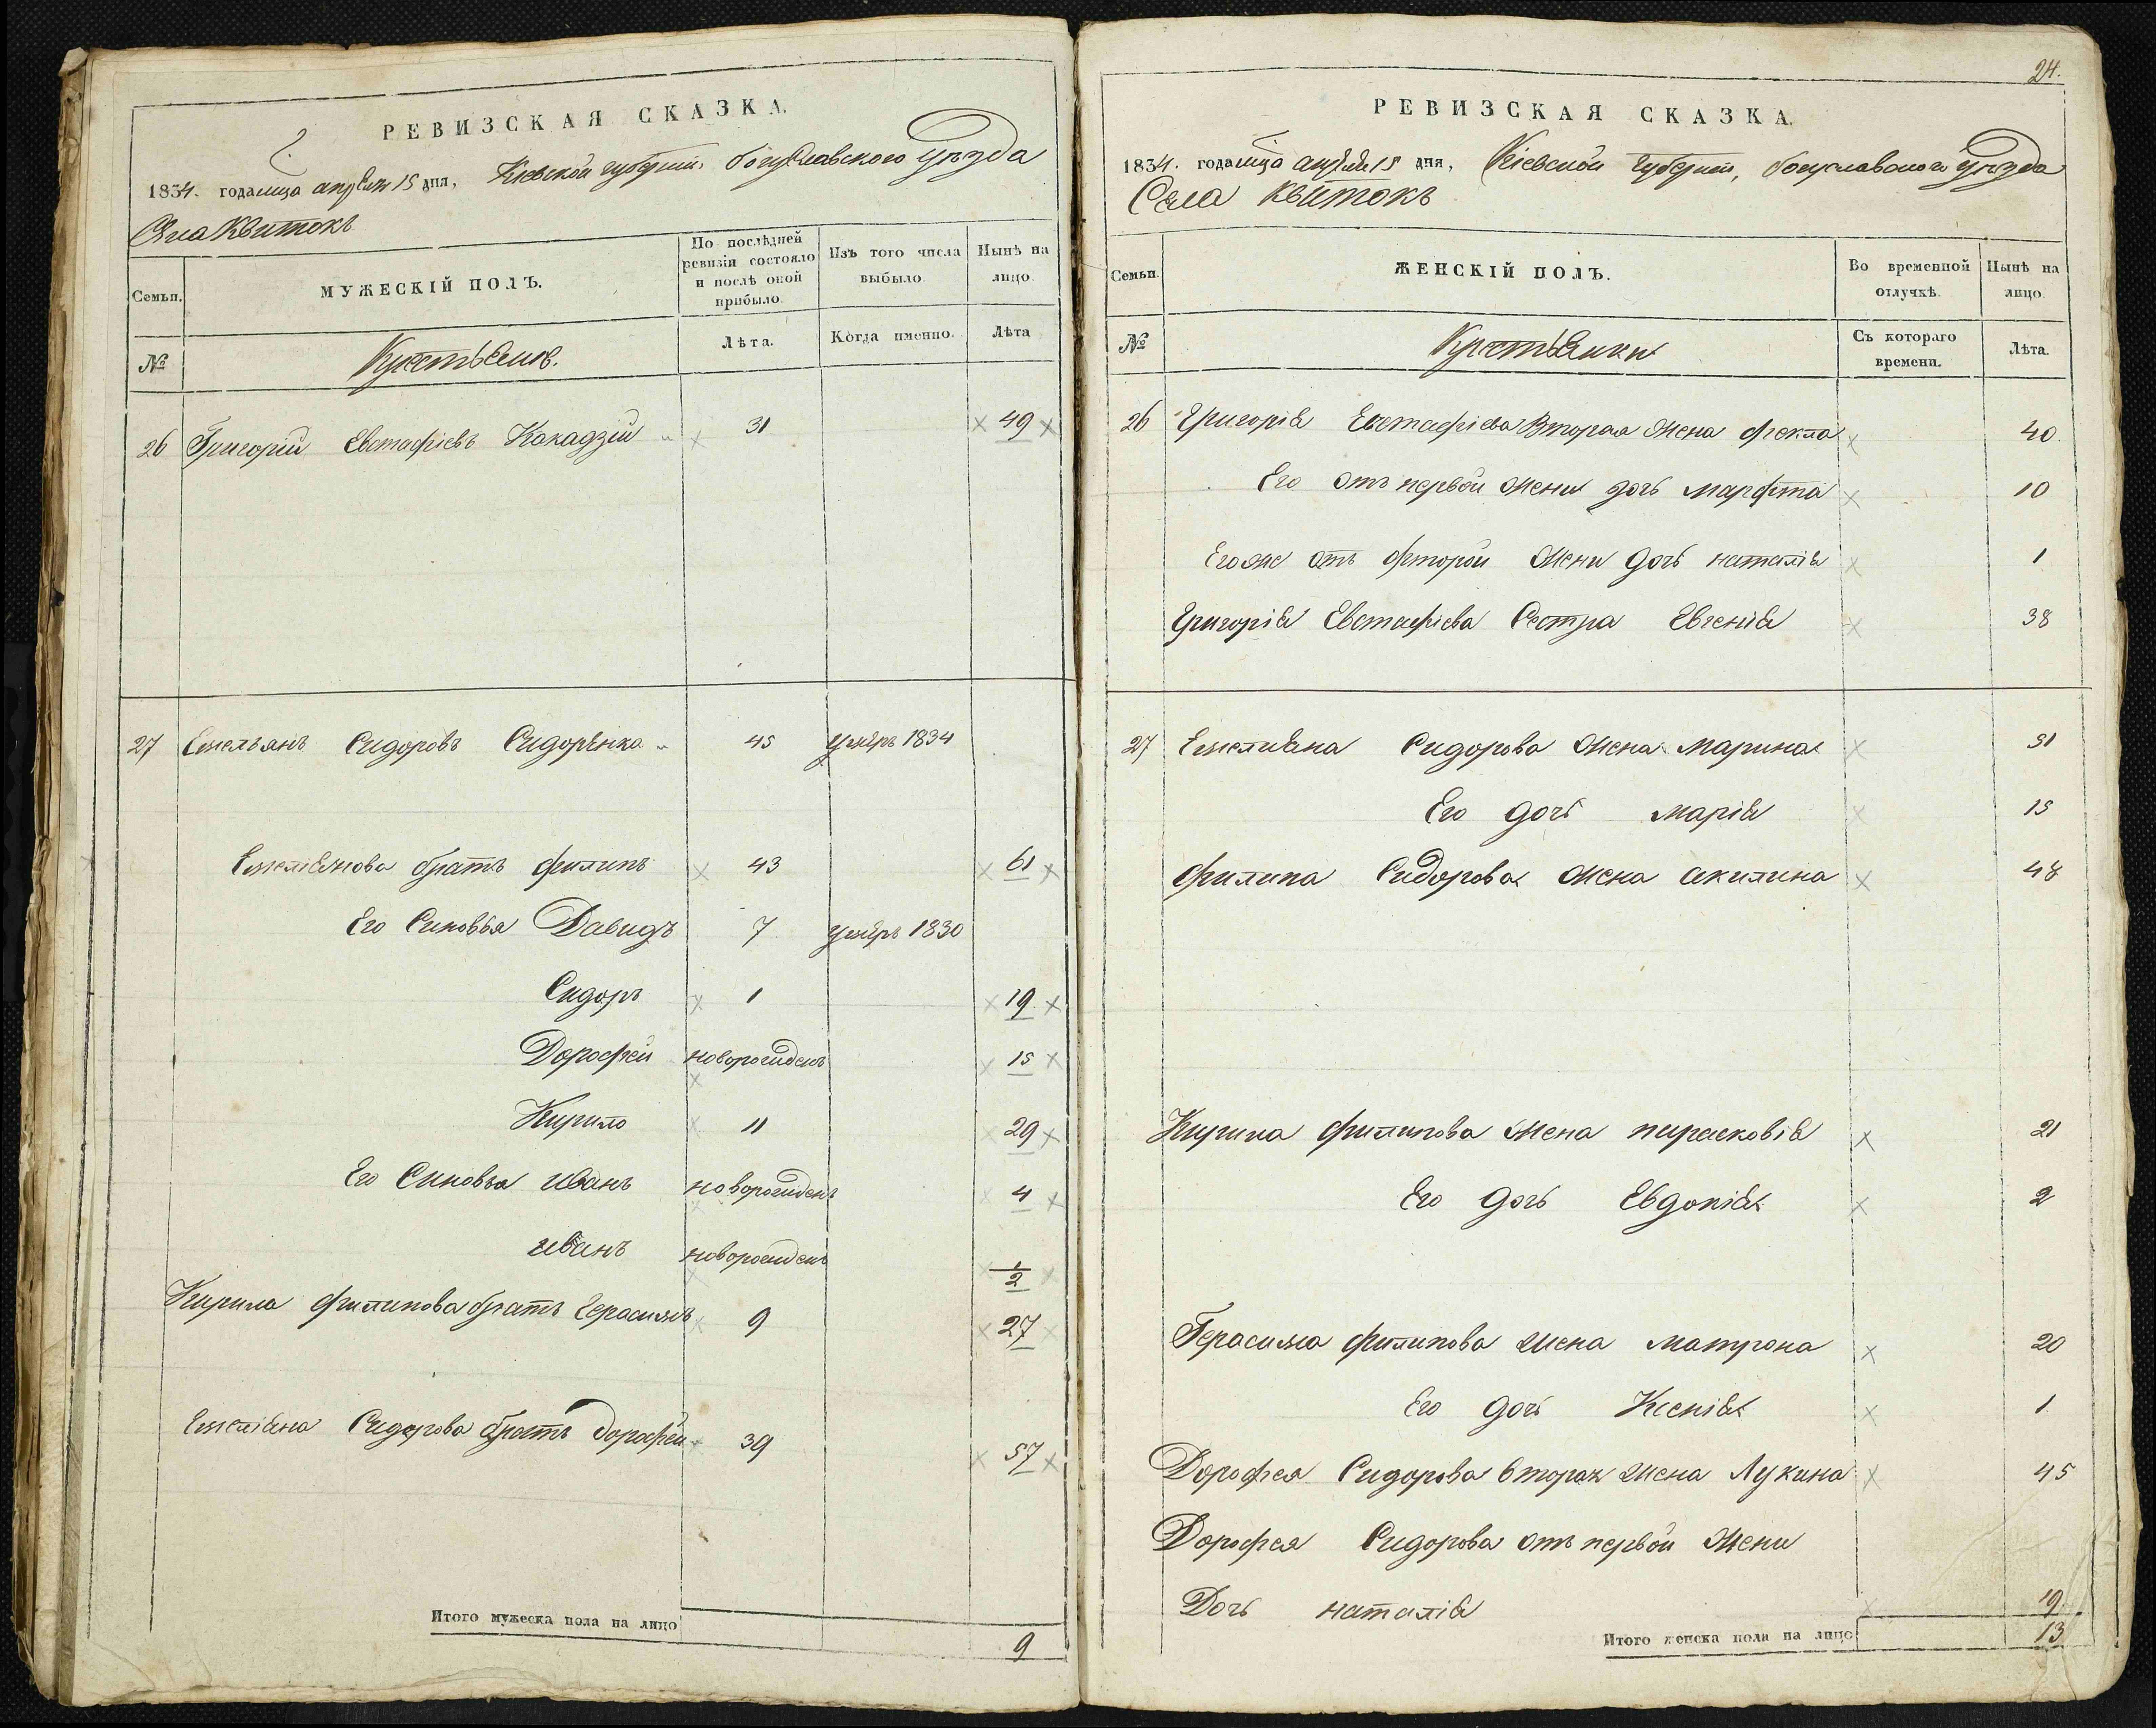 РЕВИЗСКАЯ СКАЗКА.
1834. года мца апреля 15 дня, Кіевской губерніи, богуславского уезда
Села Квитокъ
Семьи.
МУЖЕСКІЙ ПОЛЪ.
По послѣдней ревизіи состояло и послѣ оной прибыло.
Изъ того числа выбыло.
Нынѣ на лицо
№
Крестьяне.
Лѣта.
Когда именно.
Лѣта
26 Григорій Евстафіевъ Кокадзій 31 49
27 Емельянъ Сидоровъ Сидорѣнко 45 умеръ 1834
Емеліянова братъ филипъ 43 61
Его Сыновья Давидъ 7 умеръ 1830
Сидоръ 1 19
Дорофей новорожденъ 15
Кирило 11 29
Его Сыновья иванъ новорожденъ 4
иванъ новорожденъ 1/2
Кирила филипова братъ герасимъ 9 27
Емеліяна Сидорова братъ дорофей 39 57
Итого мужеска пола на лицо
9
24.
РЕВИЗСКАЯ СКАЗКА.
1834. года мца апреля 15 дня, Кіевской губерніи, богуславского уезда
Села Квитокъ
Семьи.
ЖЕНСКІЙ ПОЛЪ.
Во временной отлучкѣ.
Нынѣ на лицо
№
Крестьянки
Съ котораго времени.
Лѣта.
26 Григорія Евстафіева Вторая жена фекла 40.
Его отъ первой жени дочь марфта 10
Его же отъ фторой жени дочь наталія 1
Григорія Евстафіева Сестра Евгенія 38
27 Емелияна Сидорова жена марина 51
Его дочь марія 15
филипа Сидорова жена акилина 48
Кирила филипова жена парасковія 21
Его дочь Евдокія 2
Герасима филипова жена матрона 20
Его дочь Ксенія 1
Дорофея Сидорова вторая жена Лукина 45
Дорофея Сидорова отъ первой жени
Дочь наталія 19
Итого женска пола на лицо
13